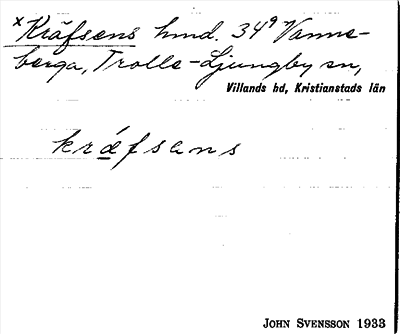 x Kräfsens hmd. 34⁹ Vanne-
berga, Trolle-Ljungby sn,
Villands hd, Kristianstads län
kræ̀fsens
JOHN SVENSSON 1933